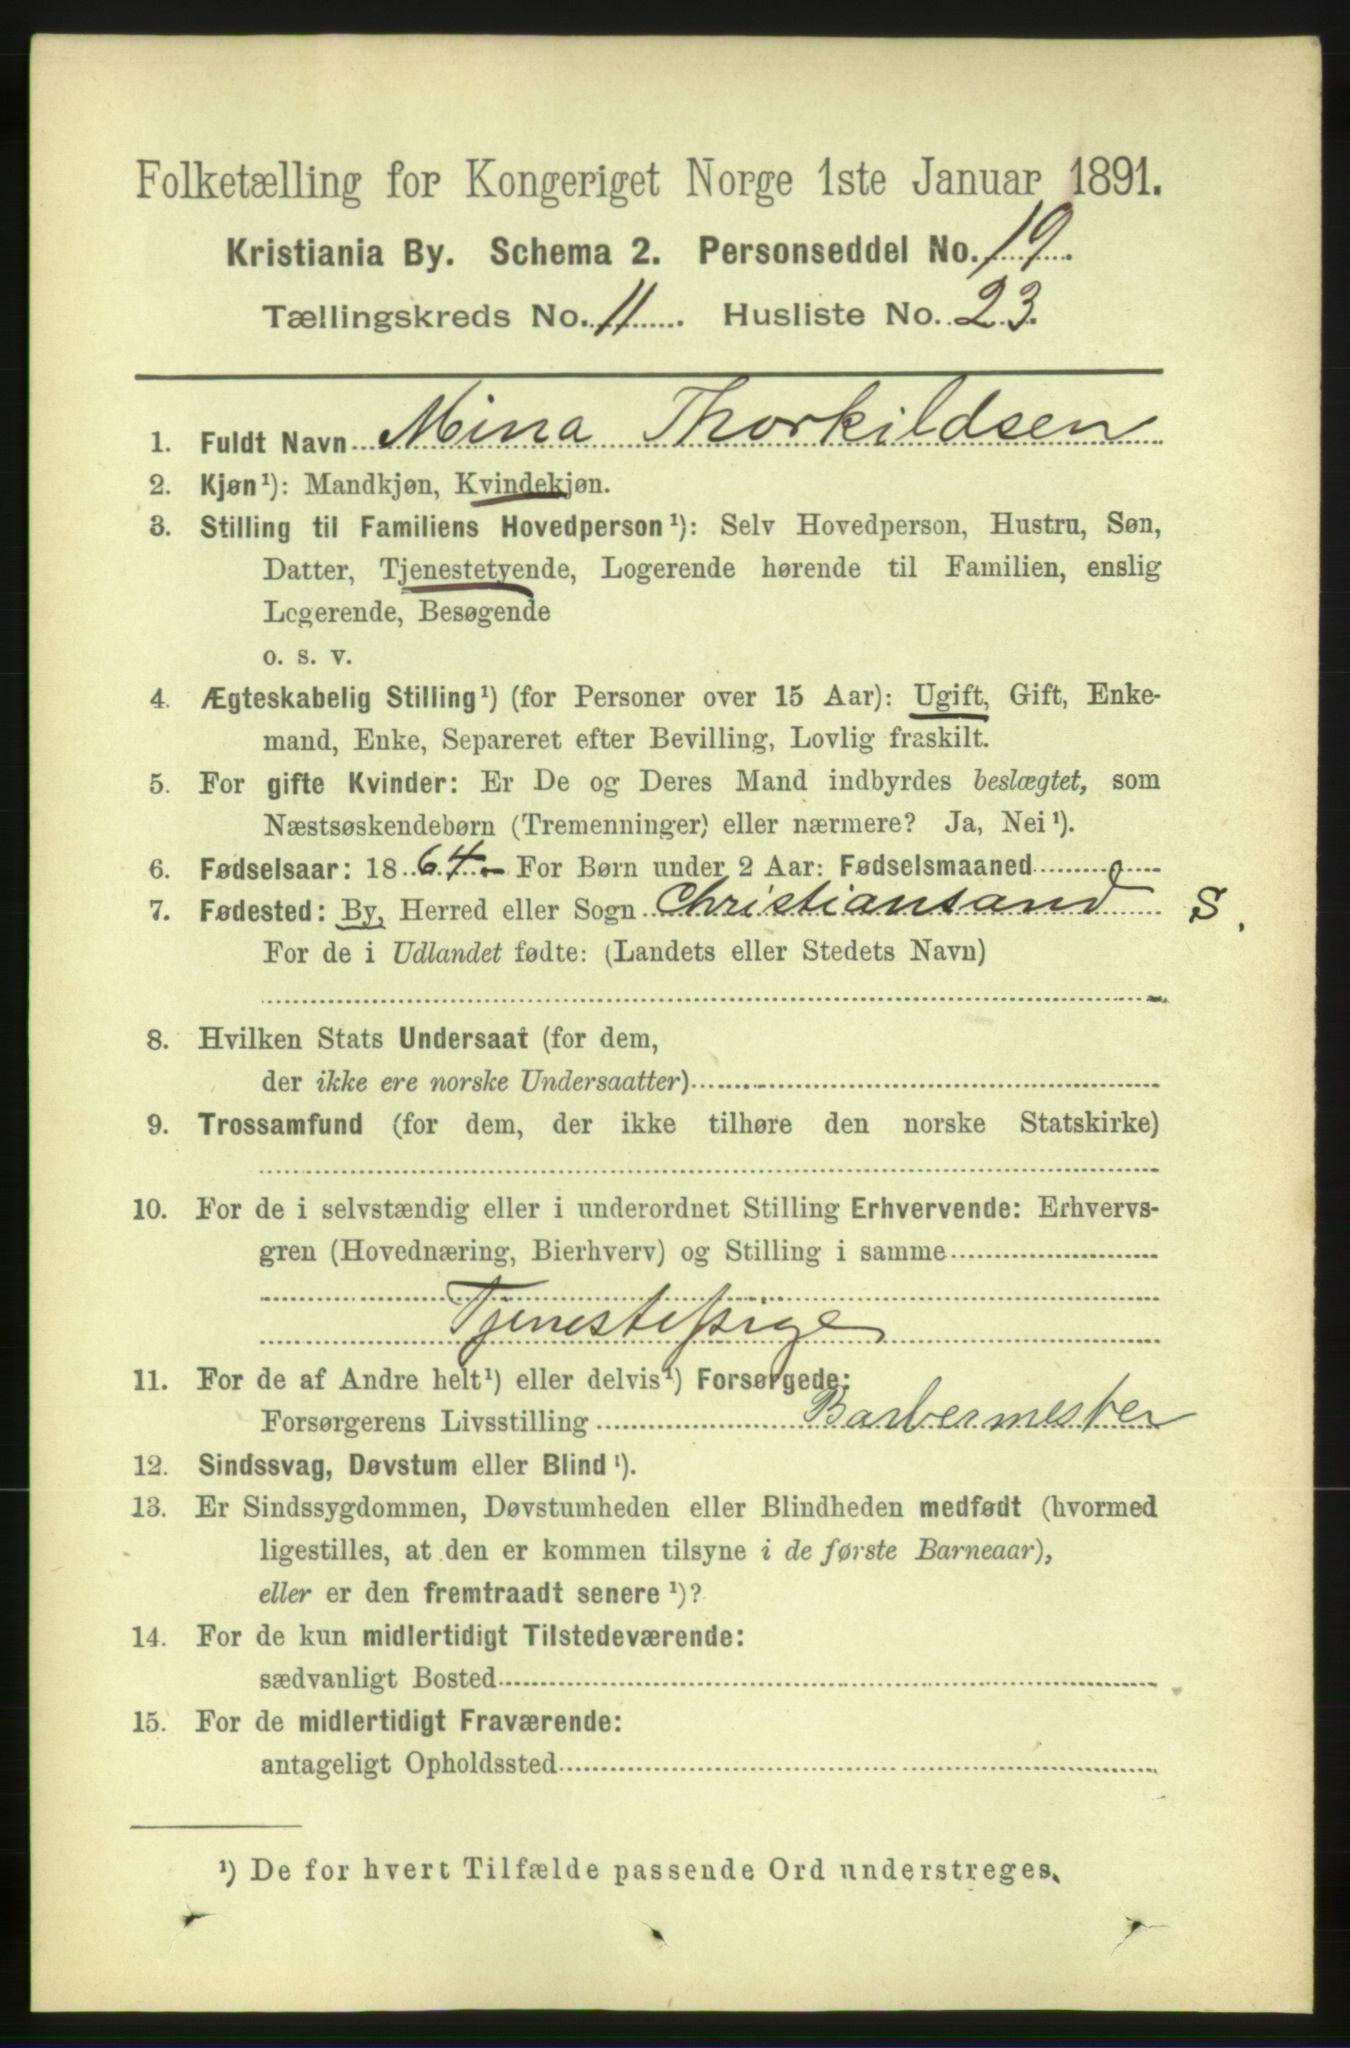 Folketælling for Kongeriget Norge 1ste Januar 1891.
Kristiania By. Schema 2. Personseddel No. 19.
Tællingskreds No. 11. Husliste No. 23.
1. Fuldt Navn Mina Thorkildsen
2. Kjøn¹): Mandkjøn, Kvindekjøn.
3. Stilling til Familiens Hovedperson¹): Selv Hovedperson, Hustru, Søn,
Datter, Tjenestetyende, Logerende hørende til Familien, enslig
Logerende, Besøgende
o. s. v.
4. Ægteskabelig Stilling¹) (for Personer over 15 Aar): Ugift, Gift, Enke-
mand, Enke, Separeret efter Bevilling, Lovlig fraskilt.
5. For gifte Kvinder: Er De og Deres Mand indbyrdes beslægtet, som
Næstsøskendebørn (Tremenninger) eller nærmere? Ja, Nei¹).
6. Fødselsaar: 1864. For Børn under 2 Aar: Fødselsmaaned
7. Fødested: By, Herred eller Sogn Christiansand S.
For de i Udlandet fødte: (Landets eller Stedets Navn)
8. Hvilken Stats Undersaat (for dem,
der ikke ere norske Undersaatter)
9. Trossamfund (for dem, der ikke tilhøre den norske Statskirke)
10. For de i selvstændig eller i underordnet Stilling Erhvervende: Erhvervs-
gren (Hovednæring, Bierhverv) og Stilling i samme
Tjenestepige
11. For de af Andre helt¹) eller delvis¹) Forsørgede:
Forsørgerens Livsstilling Barbermester
12. Sindssvag, Døvstum eller Blind¹).
13. Er Sindssygdommen, Døvstumheden eller Blindheden medfødt (hvormed
ligestilles, at den er kommen tilsyne i de første Barneaar),
eller er den fremtraadt senere¹)?
14. For de kun midlertidigt Tilstedeværende:
sædvanligt Bosted
15. For de midlertidigt Fraværende:
antageligt Opholdssted
¹) De for hvert Tilfælde passende Ord understreges.